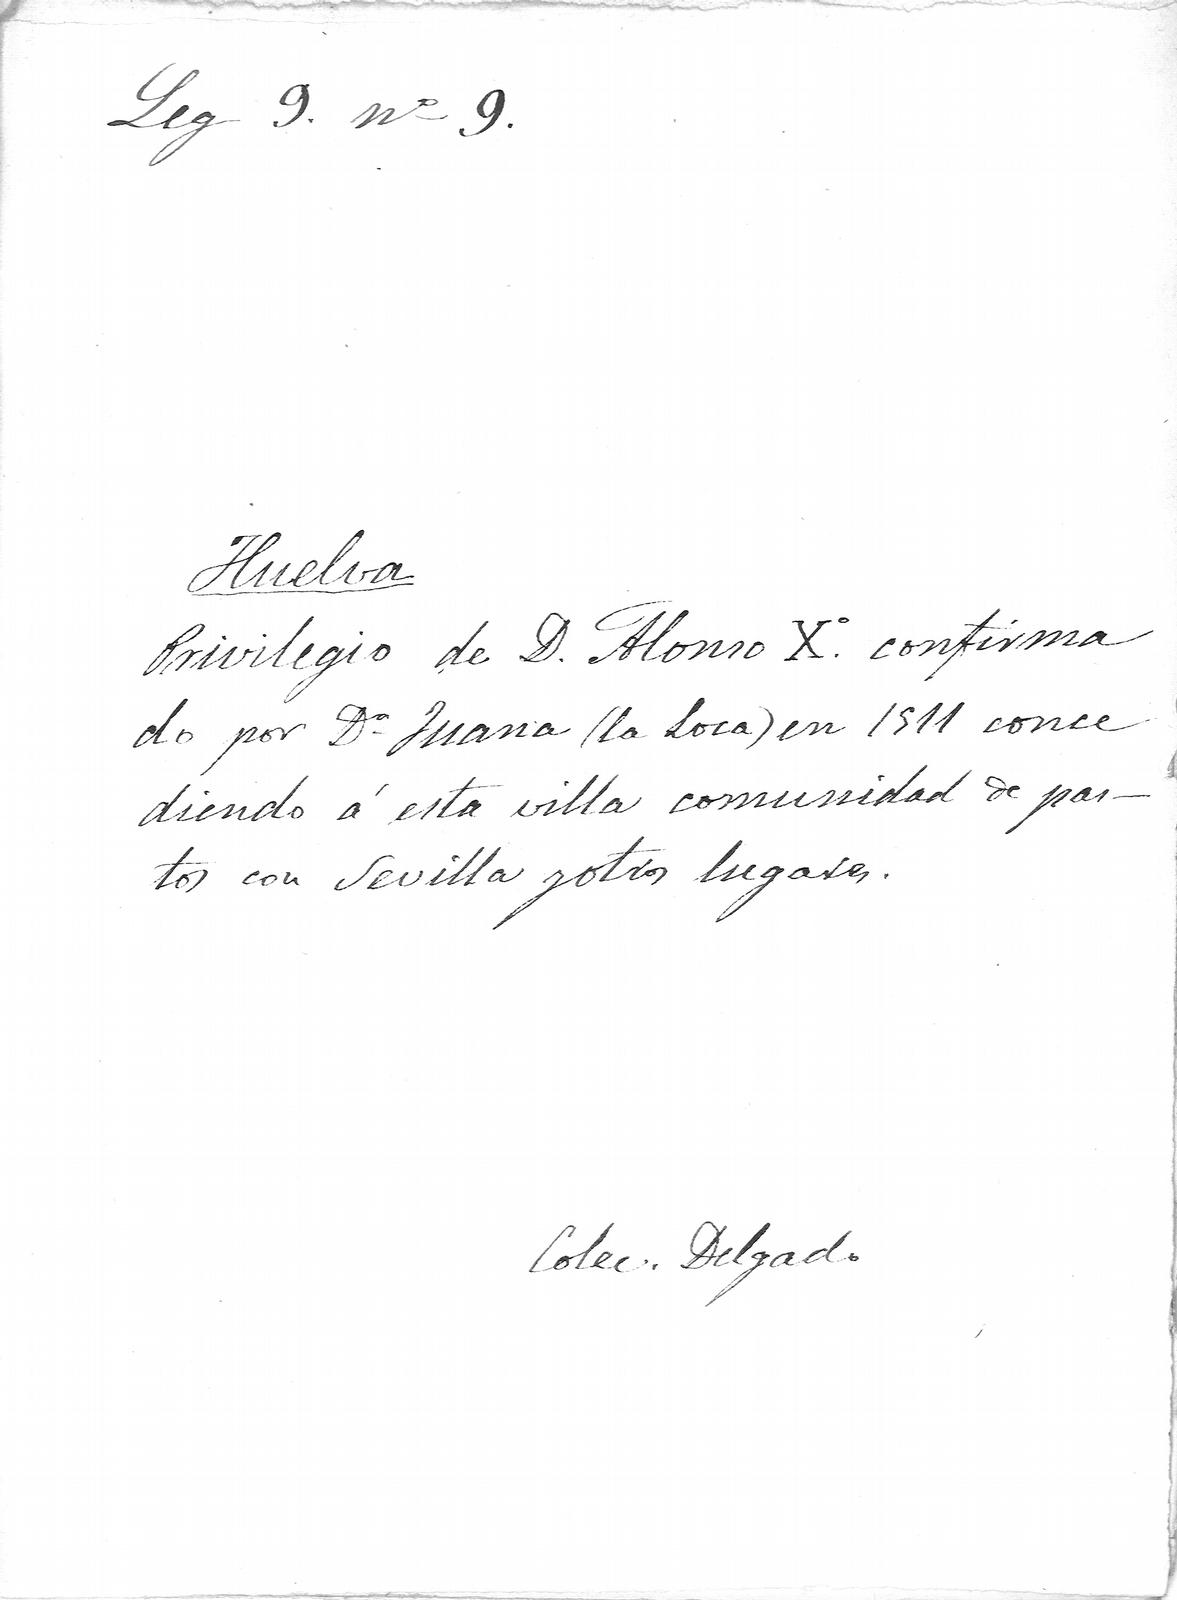 Leg 9. nº 9.
Huelva
Privilegio de D. Alonso Xº. confirma
do por Dª Juana (la Loca) en 1511 conce
diendo á esta villa comunidad de pas—
tos con Sevilla y otros lugares.
Colec. Delgado